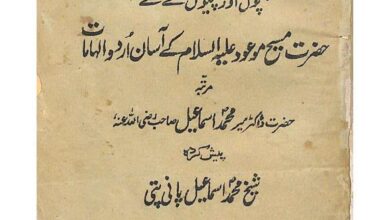 بچوں اور بچیوں کے لئے
حضرت مسیح موعود علیہ السلام کے آسان اُردو الہامات
مرتبہ
حضرت ڈاکٹر میر محمد اسماعیل صاحب رضی اللہ عنہ
پیش کردہ
شیخ محمد اسماعیل پانی پتی